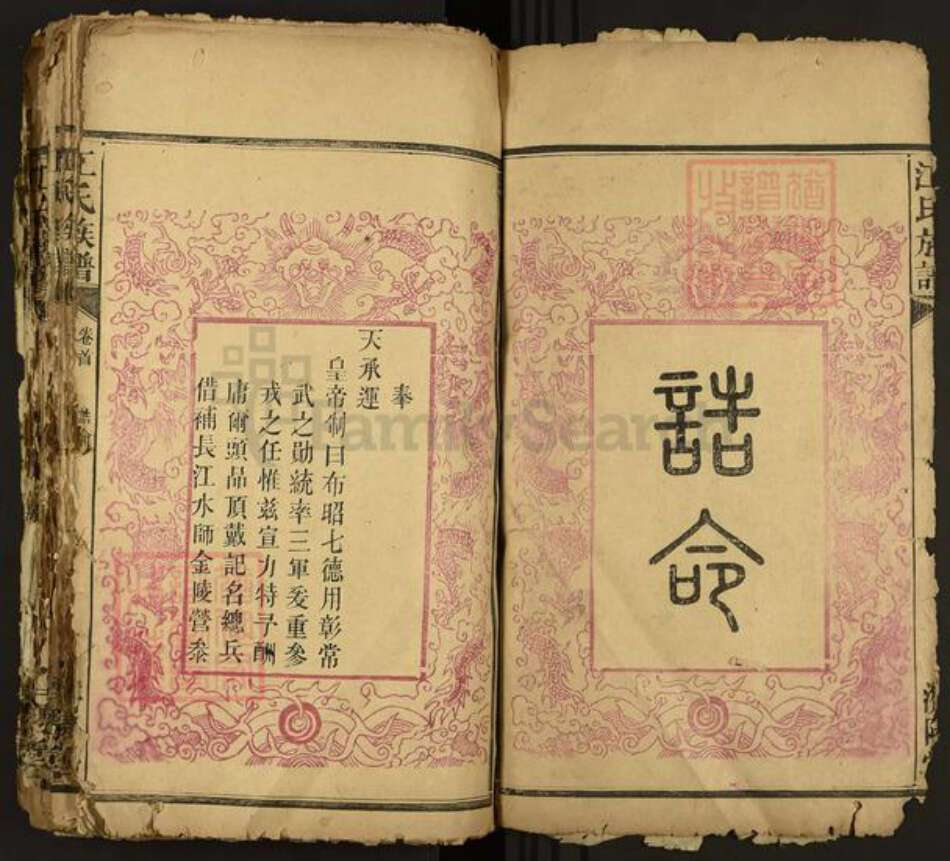 誥命
奉
天承運
皇帝制曰布昭七德用彰常
武之勛統率三軍爰重參
戎之任惟茲宣力特予酬
庸爾頭品頂戴記名總兵
借補長江水師金陵營叅
江氏族譜
卷首
江氏族譜
FamilySearch